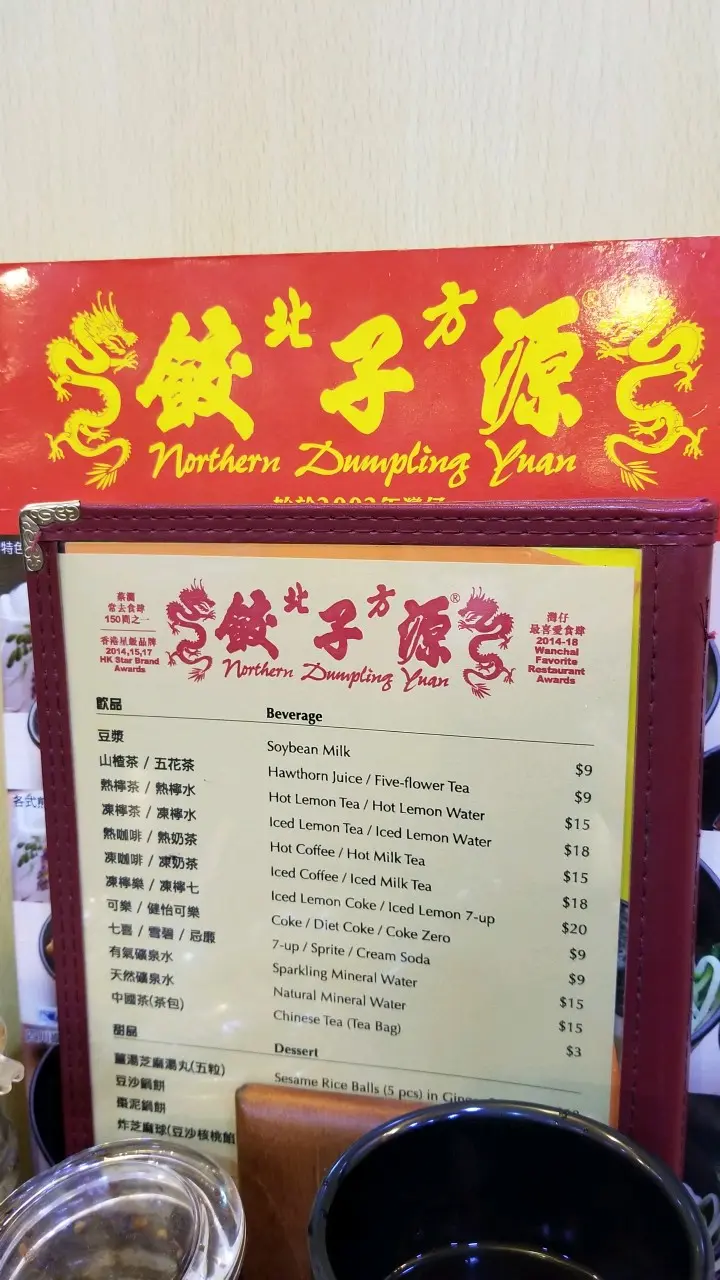 北方
餃子源®
Northern Dumpling Yuan
特色
蔡瀾
常去食肆
150間之一
香港星級品牌
2014,15,17
HK Star Brand
Awards
北方
餃子源®
Northern Dumpling Yuan
灣仔
最喜愛食肆
2014-18
Wanchai
Favorite
Restaurant
Awards
飲品 Beverage
豆漿 Soybean Milk $9
山楂茶 / 五花茶 Hawthorn Juice / Five-flower Tea $9
熱檸茶 / 熱檸水 Hot Lemon Tea / Hot Lemon Water $15
凍檸茶 / 凍檸水 Iced Lemon Tea / Iced Lemon Water $18
熱咖啡 / 熱奶茶 Hot Coffee / Hot Milk Tea $15
凍咖啡 / 凍奶茶 Iced Coffee / Iced Milk Tea $18
凍檸樂 / 凍檸七 Iced Lemon Coke / Iced Lemon 7-up $20
可樂 / 健怡可樂 Coke / Diet Coke / Coke Zero $9
七喜 / 雪碧 / 忌廉 7-up / Sprite / Cream Soda $9
有氣礦泉水 Sparkling Mineral Water $15
天然礦泉水 Natural Mineral Water $15
中國茶(茶包) Chinese Tea (Tea Bag) $3
甜品 Dessert
薑湯芝麻湯丸(五粒) Sesame Rice Balls (5 pcs) in
豆沙鍋餅
棗泥鍋餅
炸芝麻球(豆沙核桃餡
各式